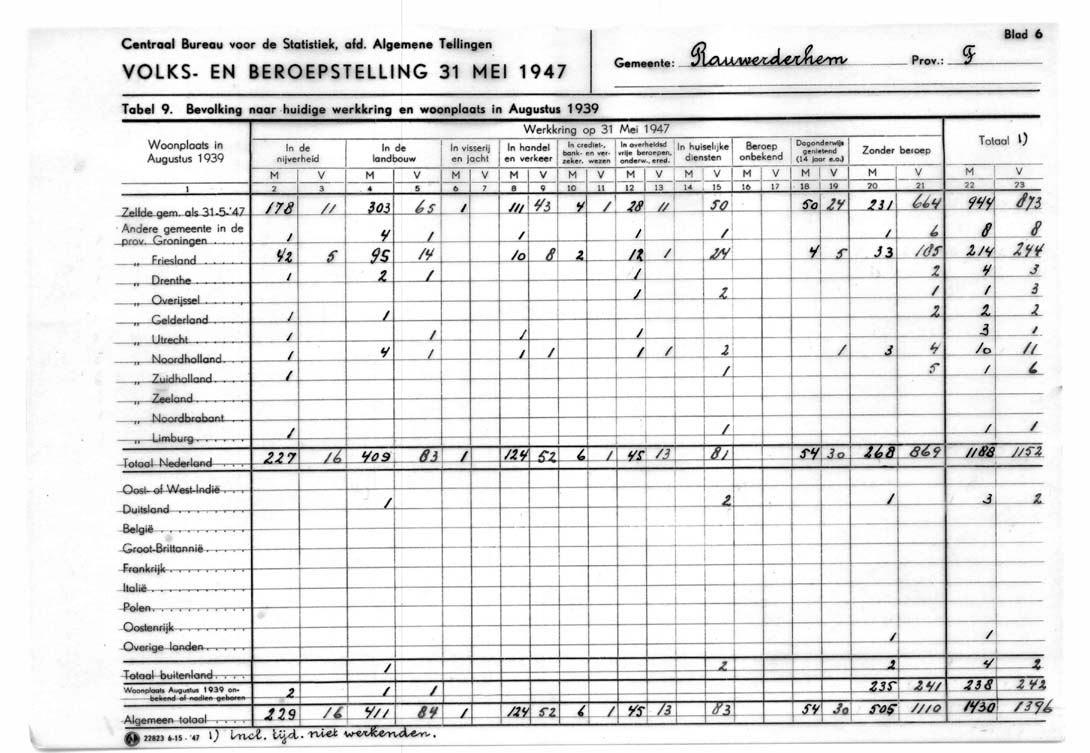 Centraal Bureau voor de Statistiek, afd. Algemene Tellingen
VOLKS- EN BEROEPSTELLING 31 MEI 1947
Gemeente: Rauwerderhem Prov.: F
Blad 6
Tabel 9. Bevolking naar huidige werkkring en woonplaats in Augustus 1939
Woonplaats in Augustus 1939
Werkkring op 31 Mei 1947
In de nijverheid
In de landbouw
In visserij en jacht
In handel en verkeer
In crediet-, bank- en verzeker. wezen
In overheidsd vrije beroepen, onderw., ered.
In huiselijke diensten
Beroep onbekend
Dagonderwijs genietend (14 jaar e.o.)
Zonder beroep
Totaal 1)
M V M V M V M V M V M V M V M V M V M V M V
1 2 3 4 5 6 7 8 9 10 11 12 13 14 15 16 17 18 19 20 21 22 23
Zelfde gem. als 31-5-'47 178 11 303 65 1 111 43 4 1 28 11 50 50 24 231 664 944 873
Andere gemeente in de
prov. Groningen 1 4 1 1 1 1 1 6 8 8
„ Friesland 42 5 95 14 10 8 2 12 1 24 4 5 33 185 214 244
„ Drenthe 1 2 1 1 2 4 3
„ Overijssel 1 2 1 1 3
„ Gelderland 1 1 2 2 2
„ Utrecht 1 1 1 1 3 1
„ Noordholland 1 4 1 1 1 1 1 2 1 3 4 10 11
„ Zuidholland 1 1 5 1 6
„ Zeeland
„ Noordbrabant
„ Limburg 1 1 1 1
Totaal Nederland 227 16 409 83 1 124 52 6 1 45 13 81 54 30 268 869 1188 1152
Oost- of West-Indië
Duitsland 1 2 1 3 2
België
Groot-Brittannië
Frankrijk
Italië
Polen
Oostenrijk
Overige landen 1 1
Totaal buitenland 1 2 2 4 2
Woonplaats Augustus 1939 onbekend of nadien geboren 2 1 1 235 241 238 242
Algemeen totaal 229 16 411 84 1 124 52 6 1 45 13 83 54 30 505 1110 1430 1396
22823 6-15-'47 1) incl. tijd. niet werkenden.